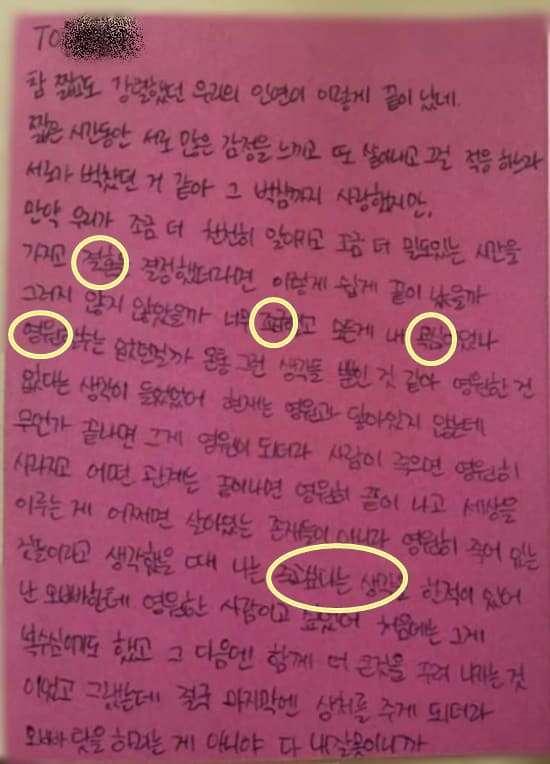 TO
참 짧고도 강렬했던 우리의 인연이 이렇게 끝이 났네.
짧은 시간동안 서로 많은 감정을 느끼고 또 쏟아내고 그걸 적응 하느라
서로가 벅찼던 거 같아 그 벅참까지 사랑했지만,
만약 우리가 조금 더 천천히 알아가고 조금 더 밀도있는 시간을
가지고 결혼을 결정했더라면 이렇게 쉽게 끝이 났을까
그러지 않지 않았을까 너무 조급하고 모든게 내 욕심이었나
영원할수는 없었던걸까 온통 그런 생각들 뿐인 것 같아 영원한 건
없다는 생각이 들었었어 현재는 영원과 닿아있지 않는데
무언가 끝나면 그게 영원이 되더라 사람이 죽으면 영원히
사라지고 어떤 관계는 끝이나면 영원히 끝이 나고 세상을
이루는 게 어쩌면 살아있는 존재들이 아니라 영원히 죽어 있는
것들이라고 생각했을 때 나는 죽고싶다는 생각을 한적이 있어
난 오빠한테 영원한 사람이고 싶었어 처음에는 그게
욕심이기도 했고 그 다음엔 함께 더 큰것을 꾸려 나가는 것
이었고 그랬는데 결국 마지막엔 상처를 주게 되더라
오빠 탓을 하려는 게 아니야 다 내잘못이니까